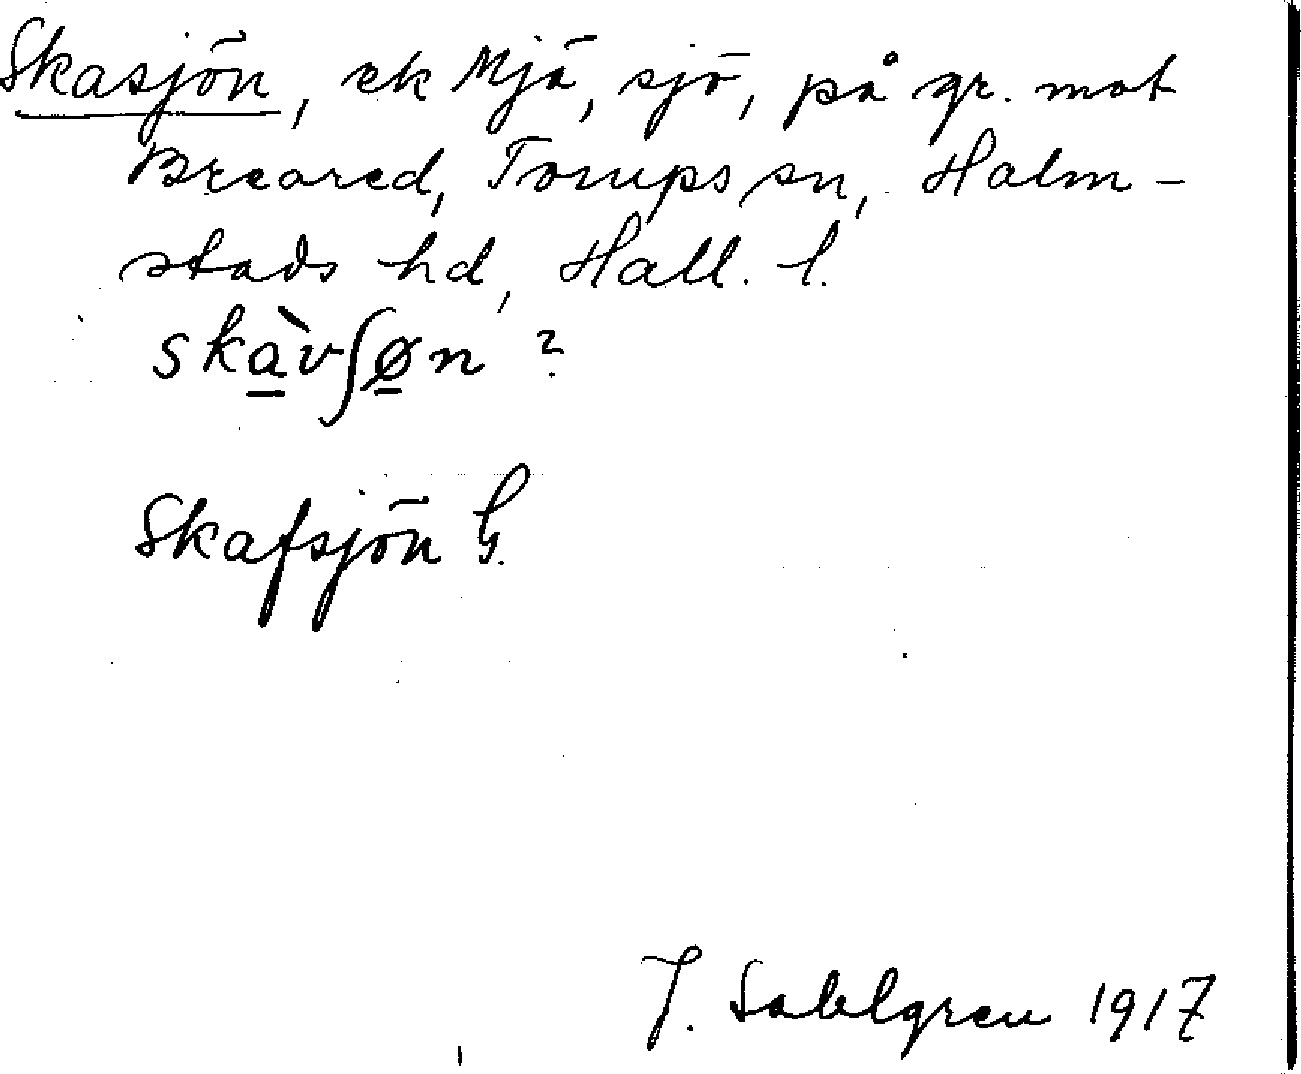 Skasjön, ek Mjä, sjö, på gr. mot
Breared, Torups sn, Halm-
stads hd, Hall. l.
skàvʃøn ?
Skafsjön G.
J. Sahlgren 1917